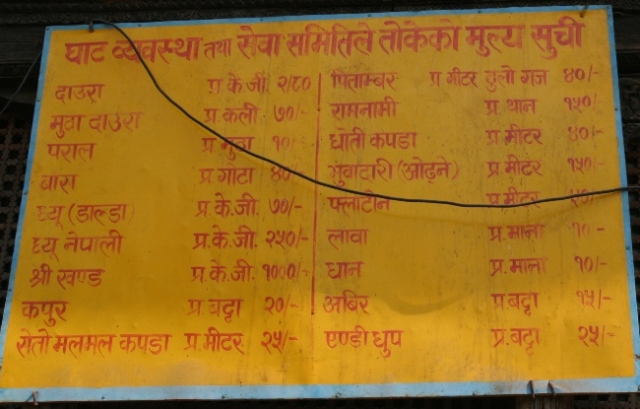 घाट व्यवस्था तथा सेवा समितिले तोकेको मुल्य सुची
दाउरा प्र के.जी. २/८०
मुढा दाउरा प्र.कली. ७०/-
पराल प्र मुठा १०/-
बास प्र.गोटा ४०/-
घ्यू (डाल्डा) प्र.के.जी. ७०/-
घ्यू नेपाली प्र.के.जी. २५०/-
श्री खण्ड प्र.के.जी. १०००/-
कपुर प्र.बट्टा २०/-
सेतो मलमल कपडा प्र.मीटर २५/-
पिताम्बर प्र मीटर ठुलो गज ४०/-
रामनामी प्र.थान १५०/-
धोती कपडा प्र.मीटर ४०/-
(ओढ्ने) प्र.मीटर १५०/-
फ्लाटीन प्र.मीटर
लावा प्र.माना १०-
धान प्र.माना १०/-
अबिर प्र.बट्टा १५/-
एण्डी धुप प्र.बट्टा २५/-